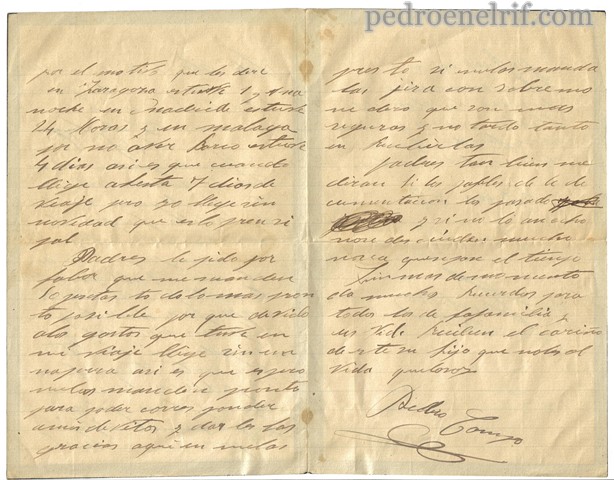 pedroenelrif.com
por el motibo que les dire
en Zaragoza estube 1 y una
noche en Madrid estube
24 Horas y en malaga
por no aber Barco estube
4 dias asi es que cuando
llege a beuta 7 dias de
biaje pero yo llege sin
novedad que es lo prensi
pal
Padres le pido por
fabor que me manden
pesetas to do lo mas pron
to posible por que devido
a los gastos que tube en
mi biaje llege sin una
asi es que espero
me las manden pronto
para poder corres ponder
amis y dar les las
gracias aqui en
presto si me las manda
las pira con sobre mo
ne dero que son mas
seguras y no tardo tanto
en recibirlas
padres tan bien me
diran si los papeles de la do
cumentacion les pasado
y si no lo an echo
no se des cuiden mucho
no sea que se pase el tienpo
Sin mas de momento
da muchos recuerdos para
todos los de la familia y
us tede reciben el cariño
de este su hijo que no los ol
vida que los
Pedro